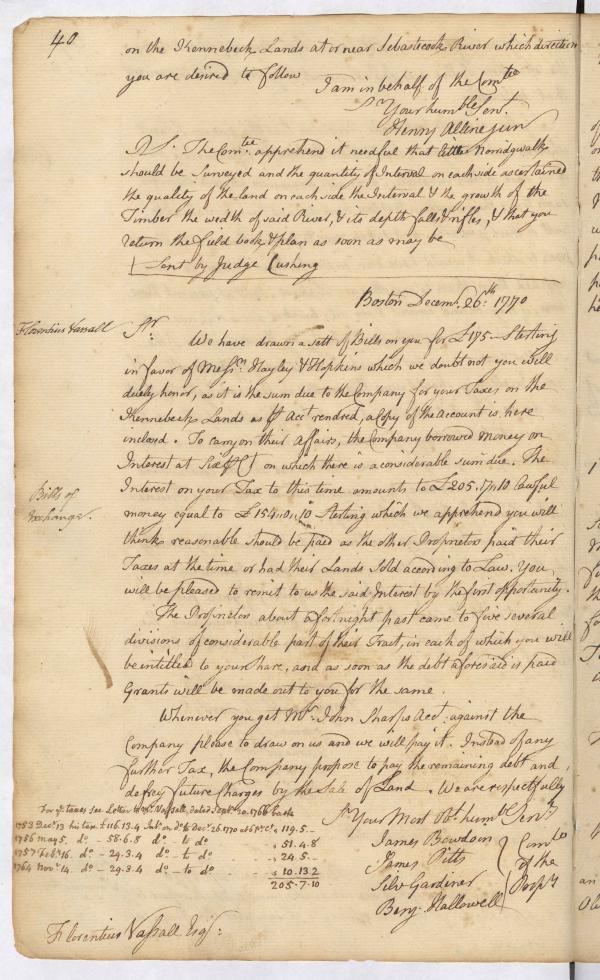 40
on the Kennebeck Lands at or near Sebastecook River which direction
you are desired to follow
I am in behalf of the Comtee
Sr. Your humble Servt.
Henry Alline junr
N.S. The Comtee. apprehend it needful that little Norridgwalk
should be Surveyed and the quantity of Interval on each side ascertained
the quality of the land on each side the Interval & the growth of the
Timber the wedth of said River, & its depth falls & rifles, & that you
return the field book & plan as soon as may be
Sent by Judge Cushing
Boston Decemr. 26th. 1770
Florentius Vassall
Sr.
We have drawn a sett of Bills on you for £175 – Sterling
in favor of Messrs. Hayley & Hopkins which we doubt not you will
duely honor, as it is the sum due to the Company for your Taxes on the
Kennebeck Lands as ⅌ Acct rendred, a Copy of the account is here
inclosed. To carry on their Affairs, the Company borrowed money on
Interest at Six ⅌ Ct on which there is a considerable sum due. The
Interest on your Tax to this time amounts to £205.17.10 Lawful
Bills of
Exchange.
money equal to £154.0.10 Sterling which we apprehend you will
think reasonable should be paid as the other Proprietors paid their
Taxes at the time or had their Lands Sold according to Law. You
will be pleased to remit to us the said Interest by the first opportunity.
The Proprietors about a fortnight past came to five several
divisions of considerable part of their Tract, in each of which you will
be intitled to your share, and as soon as the debt aforesaid is paid
Grants will be made out to you for the same.
Whenever you get Mr. John Sharps Acct. against the
Company please to draw on us and we will pay it. Instead of any
further Tax, the Company propose to pay the remaining debt and
defrey future Charges by the Sale of Land. We are respectfully
Sr. Your Most Obt. humble Servts
James Bowdoin
James Pitts
Silvr Gardiner
Benj. Hallowell
Comtee
of the
Propts
For ye. taxes see Letter to Mr. Vassall, dated Septr. 20. 1766 back
1753 Decr. 13 his tax £116.13.4 Intt. on do. to Decr. 26. 1770 at 6 ⅌ Ct. £ 119.5.–
1756 may 5. do – 58.6.8 do – to do £ 51.4.8
1757 Feb. 16. do – 29.3.4 do – to do £ 24.5.–
1764 Novr. 14. do – 29.3.4 do – to do £ 10.13.2
205.7.10
Florentius Vassall Esqr.